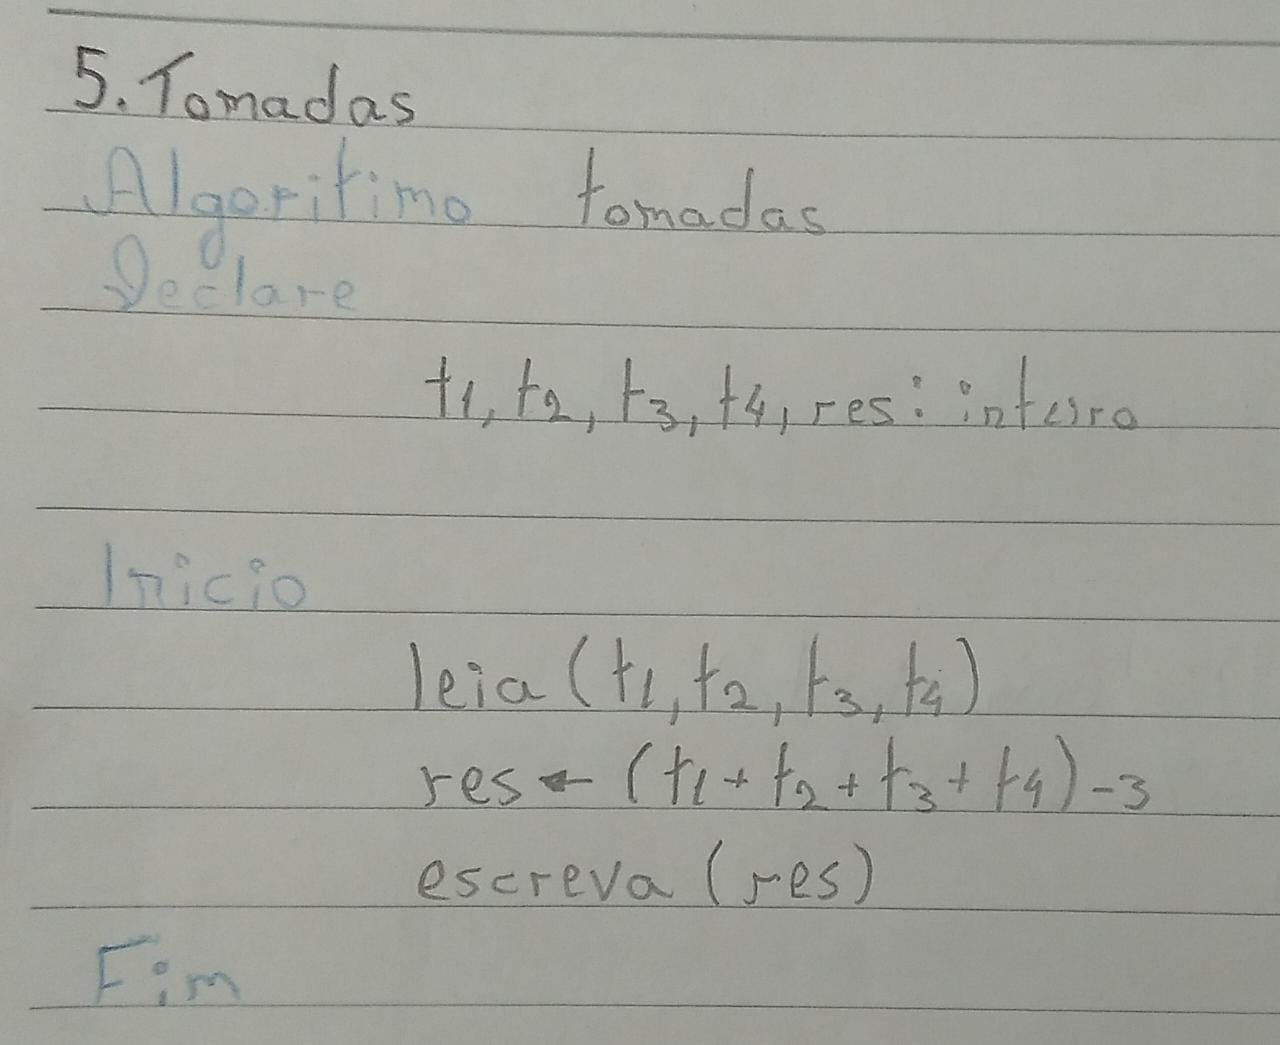 5. Tomadas
Algoritimo tomadas
Declare
t1, t2, t3, t4, res: inteiro
Inicio
leia (t1, t2, t3, t4)
res ← (t1 + t2 + t3 + t4) - 3
escreva (res)
Fim